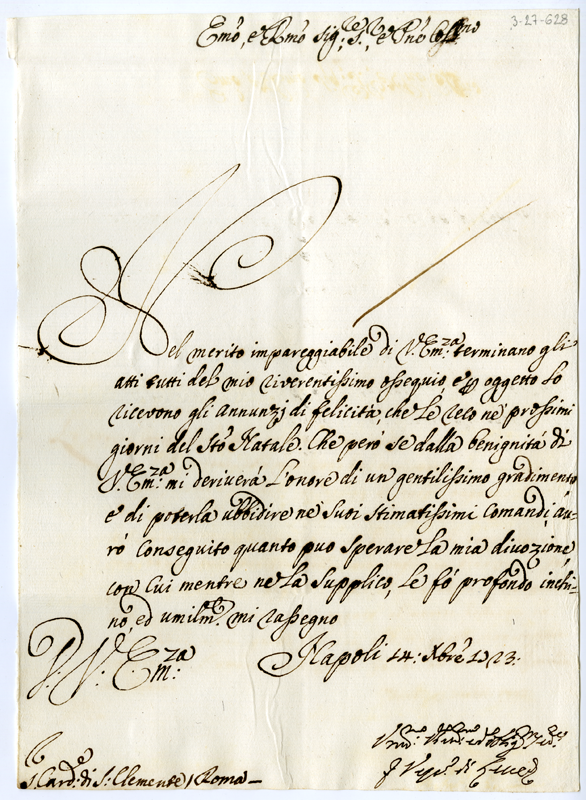 3-27-628
Emo, e Rmo Sig.re S.r, e Pne Col.mo
Nel merito impareggiabile di V. Em.za terminano gli
atti tutti del mio riverentissimo ossequio, e p oggetto lo
ricevono gli annunzj di felicità, che Le reco ne prossimi
giorni del Sto Natale. Che però se dalla benignità di
V. Em.za mi deriverà L'onore di un gentilissimo gradimento
e di poterla ubbidire ne Suoi Stimatissimi Comandi, au-
rò Conseguito quanto può Sperare La mia divozione,
con Cui mentre ne La Supplico, Le fò profondo inchi-
no, ed umilm.te mi rassegno
D. V. Em.za
Napoli 14: Xbre 1723:
S. Card.e di S: Clemente / Roma